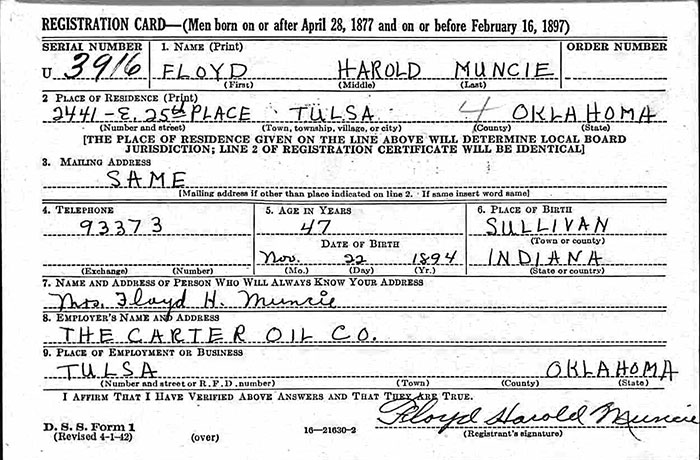 REGISTRATION CARD—(Men born on or after April 28, 1877 and on or before February 16, 1897)
SERIAL NUMBER 1. NAME (Print) ORDER NUMBER
U 3916 FLOYD HAROLD MUNCIE
(First) (Middle) (Last)
2 PLACE OF RESIDENCE (Print)
2441-E. 25th PLACE TULSA 4 OKLAHOMA
(Number and street) (Town, township, village, or city) (County) (State)
[THE PLACE OF RESIDENCE GIVEN ON THE LINE ABOVE WILL DETERMINE LOCAL BOARD
JURISDICTION; LINE 2 OF REGISTRATION CERTIFICATE WILL BE IDENTICAL]
3. MAILING ADDRESS
SAME
[Mailing address if other than place indicated on line 2. If same insert word same]
4. TELEPHONE 5. AGE IN YEARS 6. PLACE OF BIRTH
93373 47 SULLIVAN
DATE OF BIRTH (Town or county)
Nov. 22 1894 INDIANA
(Exchange) (Number) (Mo.) (Day) (Yr.) (State or country)
7. NAME AND ADDRESS OF PERSON WHO WILL ALWAYS KNOW YOUR ADDRESS
Mrs. Floyd H. Muncie
8. EMPLOYER'S NAME AND ADDRESS
THE CARTER OIL CO.
9. PLACE OF EMPLOYMENT OR BUSINESS
TULSA OKLAHOMA
(Number and street or R. F. D. number) (Town) (County) (State)
I AFFIRM THAT I HAVE VERIFIED ABOVE ANSWERS AND THAT THEY ARE TRUE.
Floyd Harold Muncie
D. S. S. Form 1
(Revised 4-1-42) (over) 16—21630-2 (Registrant's signature)